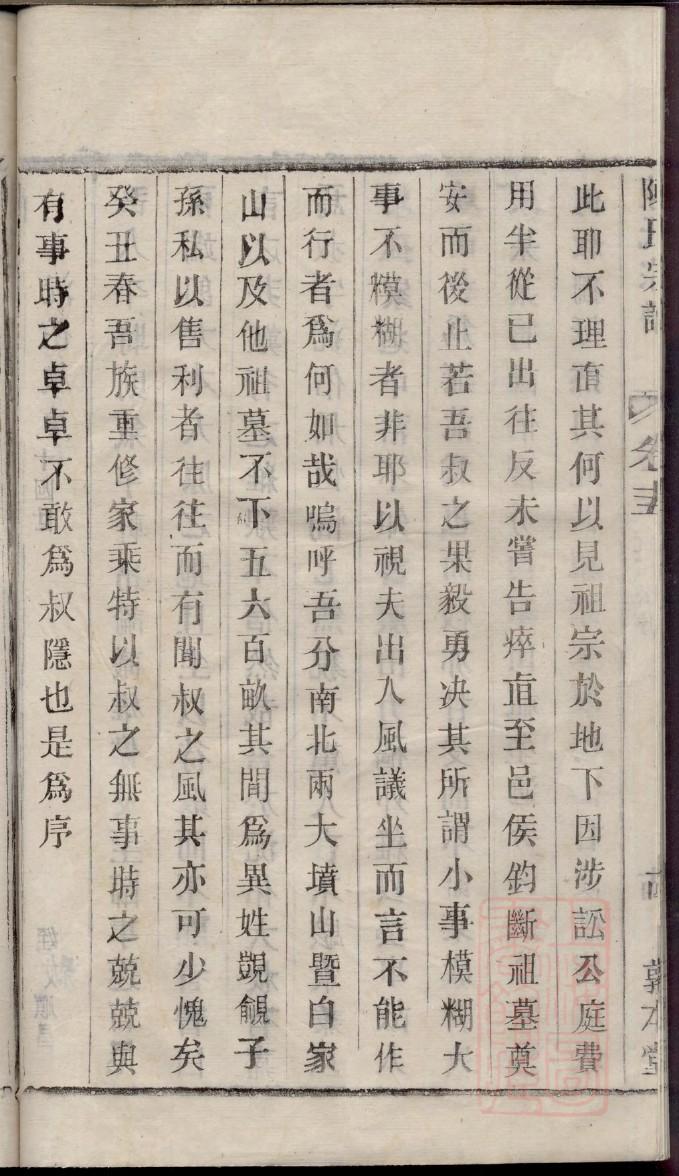 陳氏宗譜 卷
敦本堂
此耶不理直其何以見祖宗於地下因涉訟公庭費
用半從已出往反未嘗告瘁直至邑侯鈞斷祖墓奠
安而後止若吾叔之果毅勇決其所謂小事模糊大
事不糢糊者非耶以視夫出入風議坐而言不能作
而行者為何如哉嗚呼吾分南北兩大墳山暨白家
山以及他祖墓不下五六百畝其間為異姓覬覦子
孫私以售利者往往而有聞叔之風其亦可少愧矣
癸丑春吾族重修家乘特以叔之無事時之兢兢與
有事時之卓卓不敢為叔隱也是為序